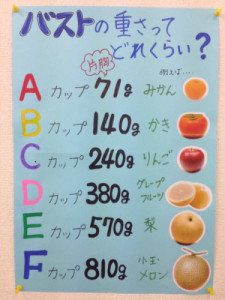 バストの重さって
どれくらい?
片胸
例えば‥‥
A カップ 71g みかん
B カップ 140g かき
C カップ 240g りんご
D カップ 380g グレープ
フルーツ
E カップ 570g 梨
F カップ 810g 小玉
メロン